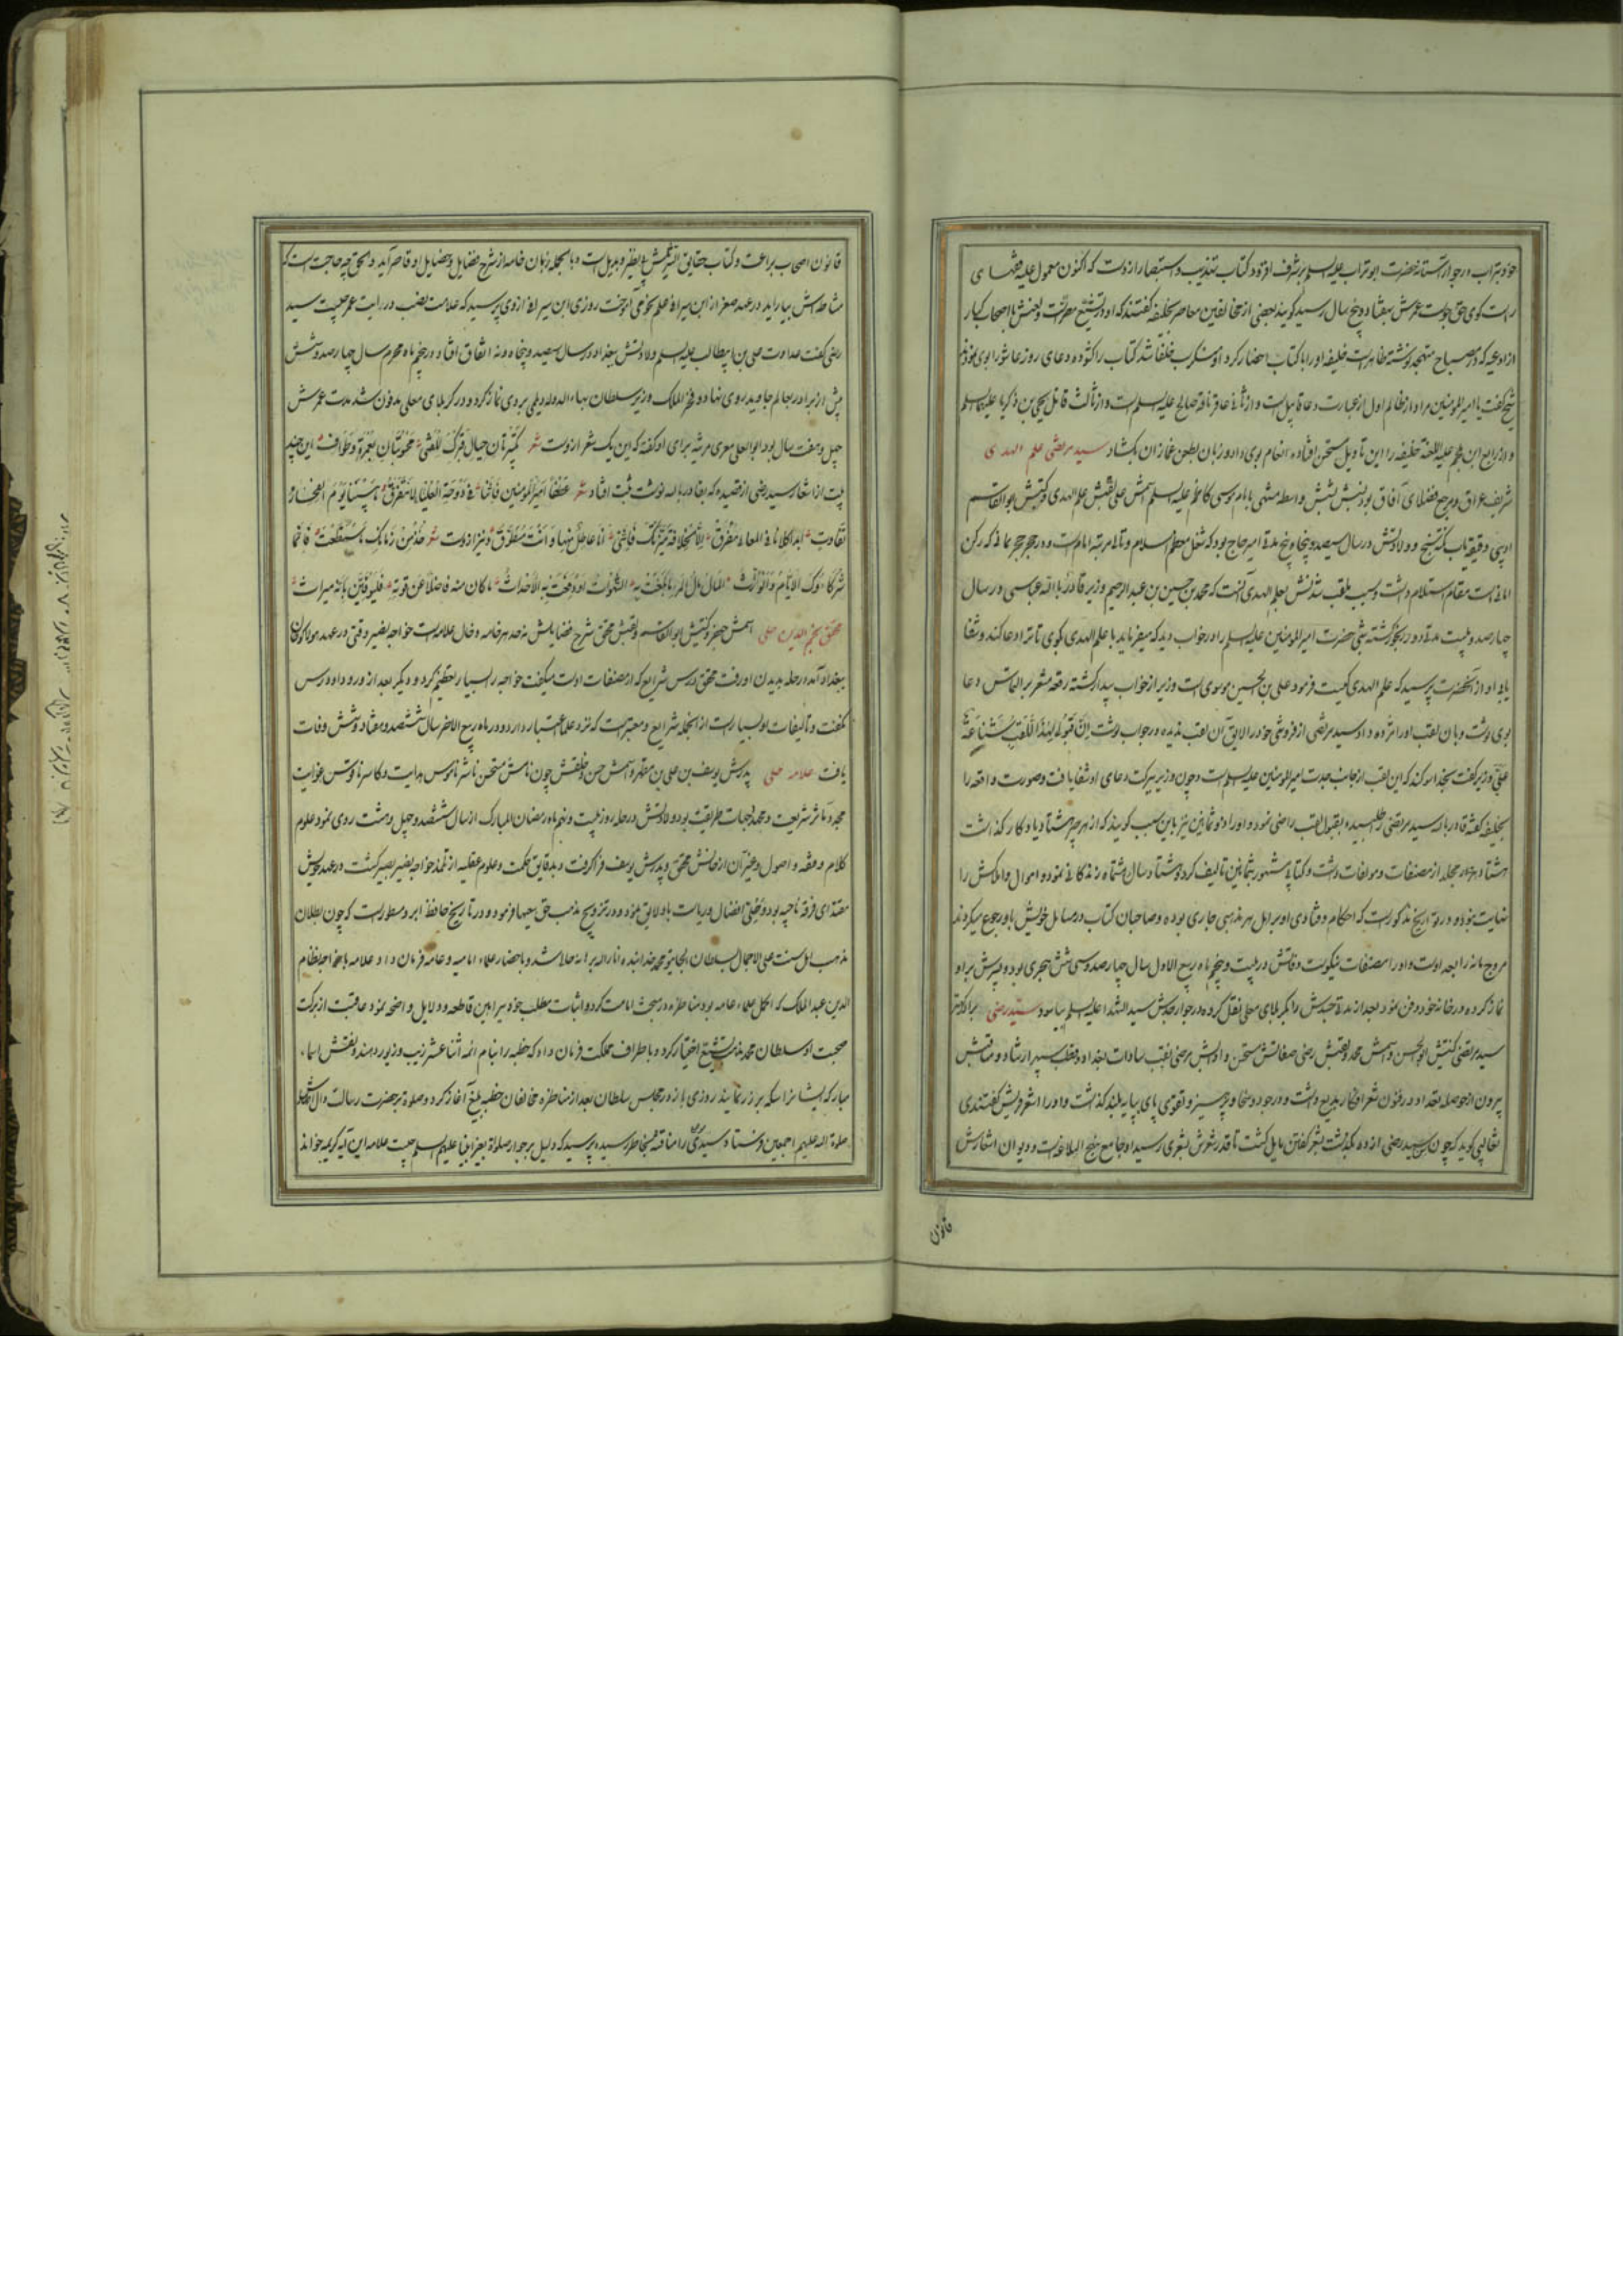 خود بتراب در جوار آستانه حضرت ابوتراب علیه السلم بر شرف افزود و کتاب تهذیب و استبصار ازوست که اکنون معمول علیه فقهای
راست کوی حق جوست عمرش بهفتاد و پنج سال رسید کویند بعضی از مخالفین معاصر بخلیفه کفتند که او در تشیع مصرست و لعنش با اصحاب کبار
از ادعیه که در مصباح متهجد نوشته ظاهرست خلیفه او را با کتاب احضار کرد او منکر سب خلفا شد کتاب را کشوده دعای روز عاشورا بوی نمودند
شیخ کفت یا امیر المومنین مراد از ظالم اول از عبارت دعا قابیل است و از ثانی عاقر ناقه صالح علیه السلم است و از ثالث قاتل یحیی بن زکریا علیهما السلم
و از رابع ابن ملجم علیه اللعنه خلیفه را این تاویل مستحسن افتاده انعام بوی داد و زبان بطعن غمازان بکشاد سید مرتضی علم الهدی
شریف عراق و مرجع فضلای آفاق بود نسبش بشش واسطه منتهی بامام موسی کاظم علیه السلم اسمش علی لقبش علم الهدی و کنیتش ابوالقاسم
و ولادتش در سال سیصد و پنجاه و پنج مدتی امیر حاج بود که شغل معظم اسلام و تالی مرتبه امامست و در حجر حجر یمانی که رکن
امانی است مقام استلام داشت و سبب ملقب شدنش بعلم الهدی آنست که محمد بن حسین بن عبدالرحیم وزیر قادر بالله عباسی در سال
چهارصد و بیست مدتی رنجور کشته شبی حضرت امیر المومنین علیه السلم را در خواب دید که میفرماید با علم الهدی کوی تا ترا دعا کند و شفا
یابی او از آنحضرت پرسید که علم الهدی کیست فرمود علی بن الحسین موسوی است وزیر از خواب بیدار کشته رقعه مشعر بر التماس دعا
بوی نوشت و بآن لقب او را مژده داد سید مرتضی از فروتنی خود را لایق آن لقب ندیده در جواب نوشت ان قبولی لهذا اللقب شناعة
علی وزیر کفت بخدا سوکند که این لقب از جانب جدت امیر المومنین علیه السلم است و چون وزیر ببرکت دعای او شفا یافت و صورت واقعه را
بخلیفه کفته قادر بالله سید مرتضی را طلبیده بقبول لقب راضی نمود و او را ذو ثمانین نیز باین سبب کویند که از هر چیز هشتاد یادکار کذاشت
هشتاد هزار مجلد از مصنفات و مولفات داشت و کتابی مشهور بثمانین تالیف کرد و هشتاد سال و هشت ماه زندکانی نموده و اموال و املاکش را
نهایت نبوده و در تواریخ مذکورست که احکام و فتاوی او بر اهل هر مذهبی جاری بوده و صاحبان کتاب در مسائل خویش باو رجوع میکردند
مروج مائه رابعه اوست و او را مصنفات نیکوست وفاتش در بیست و پنجم ماه ربیع الاول سال چهارصد و سی و شش هجری بود و پسرش برو
نماز کرده و در خانه خود دفن نمود بعد از مدتی جسدش را بکربلای معلی نقل کرده در جوار جدش سید الشهدا علیه السلم بیاسود سید رضی برادر
سید مرتضی کنیتش ابوالحسن و اسمش محمد و لقبش رضی صفاتش مستحسن و اوایش مرضی نقیب سادات بغداد و قطب سپهر ارشاد و مناقبش
بیرون از حوصله تعداد و در فنون شعر افکار بدیع داشت و در جود و سخا و پرهیز و تقوی پای بپایه بلند کذاشت و او را اشعر قریش کفتندی
ثعالبی کوید که چون سید رضی از ده بکذشت بشعر کفتن مایل کشت تا قدر شعرش بشعری رسید او جامع نهج البلاغه است و دیوان اشعارش
قانون
قانون اصحاب براعت و کتاب حقایق التنزیلش بی نظیر و بدیل است و بالجمله زبان خامه از شرح فضایل و خصایل او قاصر آید و بحق چه حاجت است که
مشاطه اش بیاراید در عهد صغر از ابن سیرافی علم نحو می آموخت روزی ابن سیرافی ازوی پرسید که علامت نصب در رایت عمر چیست سید
رضی کفت عداوت علی بن ابیطالب علیه السلم ولادتش ببغداد در سال سیصد و پنجاه و نه اتفاق افتاد و در پنجم ماه محرم سال چهارصد و شش
پیش از برادر بعالم جاوید روی نهاد و فخر الملک وزیر سلطان بهاء الدوله دیلمی بروی نماز کرد و در کربلای معلی مدفون شد مدت عمرش
چهل و هفت سال بود ابوالعلی معری مرثیه برای او کفته که این یک شعر ازوست شعر
بیت از اشعار سید رضی از قصیده که بقادر بالله نوشت ثبت افتاد شعر عطفا امیر المومنین فاننا فی دوحة العلیاء لا نتفرق ما بیننا یوم الفخار
تفاوت ابدا کلانا فی المعالی معرق الا الخلافة میزتک فاننی انا عاطل منها و انت مطوق و نیز ازوست شعر خذ من زمانک ما استطعت فانما
شرکاءک الایام و الوراث المال مال المرء ما بلغت به الشهوات او دفعت به الاحداث ما کان منه فاضلا عن قوته فلیوقنن بانه میراث
محقق نجم الدین حلی اسمش جعفر و کنیتش ابوالقاسم و لقبش محقق شرح فضایلش نه حد هر خامه و خال علامه است خواجه نصیر وقتی در عهد هولاکوخان
ببغداد آمده در حله بدیدن او رفت محقق درس شرایع که از مصنفات اوست میکفت خواجه را بسیار تعظیم کرد و دیکر بعد از ورود او درس
نکفت و تالیفات او بسیار است از آنجمله شرایع و معتبر است که نزد علما اعتبار دارد و در ماه ربیع الاخر سال ششصد و هفتاد و شش وفات
یافت علامه حلی پدرش یوسف بن علی بن مطهر و اسمش حسن و خلقش چون نامش مستحسن ناشر ناموس هدایت و کاسر ناقوس غوایت
مجدد مآثر شریعت و محدد جهات طریقت بود ولادتش در حله روز بیست و نهم ماه رمضان المبارک از سال ششصد و چهل و هشت روی نمود علوم
کلام و فقه و اصول و غیر آن از خالش محقق و پدرش یوسف فرا کرفت و بدقایق حکمت و علوم عقلیه از تلمذ خواجه نصیر بصیر کشت در عهد خویش
مقتدای فرقه ناجیه بود و تحلی افضال و ریاست باو لایق بود و در ترویج مذهب حق سعیها فرمود و در تاریخ حافظ ابرو مسطورست که چون بطلان
مذهب اهل سنت علی الاجمال بسلطان الجایتو محمد خدابنده انار الله برهانه حالی شد و باحضار علماء امامیه و عامه فرمان داد علامه با خواجه نظام
الدین عبد الملک که اکمل علماء عامه بود مناظره در مبحث امامت کرد و اثبات مطلب خود ببراهین قاطعه و دلایل واضحه نمود عاقبت از برکت
صحبت او سلطان محمد مذهب تشیع اختیار کرد و باطراف مملکت فرمان داد که خطبه را بنام ائمه اثنا عشر زیب و زیور دهند و بنقش اسماء
مبارکه ایشان سکه بر زر نمایند روزی باز در مجالس سلطان بعد از مناظره مخالفان خطبه بلیغ آغاز کرد و صلوة بر حضرت رسالت و آل اطهار
صلوة الله علیهم اجمعین فرستاد سیدرکن را مناقشه بخاطر رسیده پرسید که دلیل بر جواز صلوة بغیر انبیا علیهم السلم چیست علامه این آیه کریمه خواند